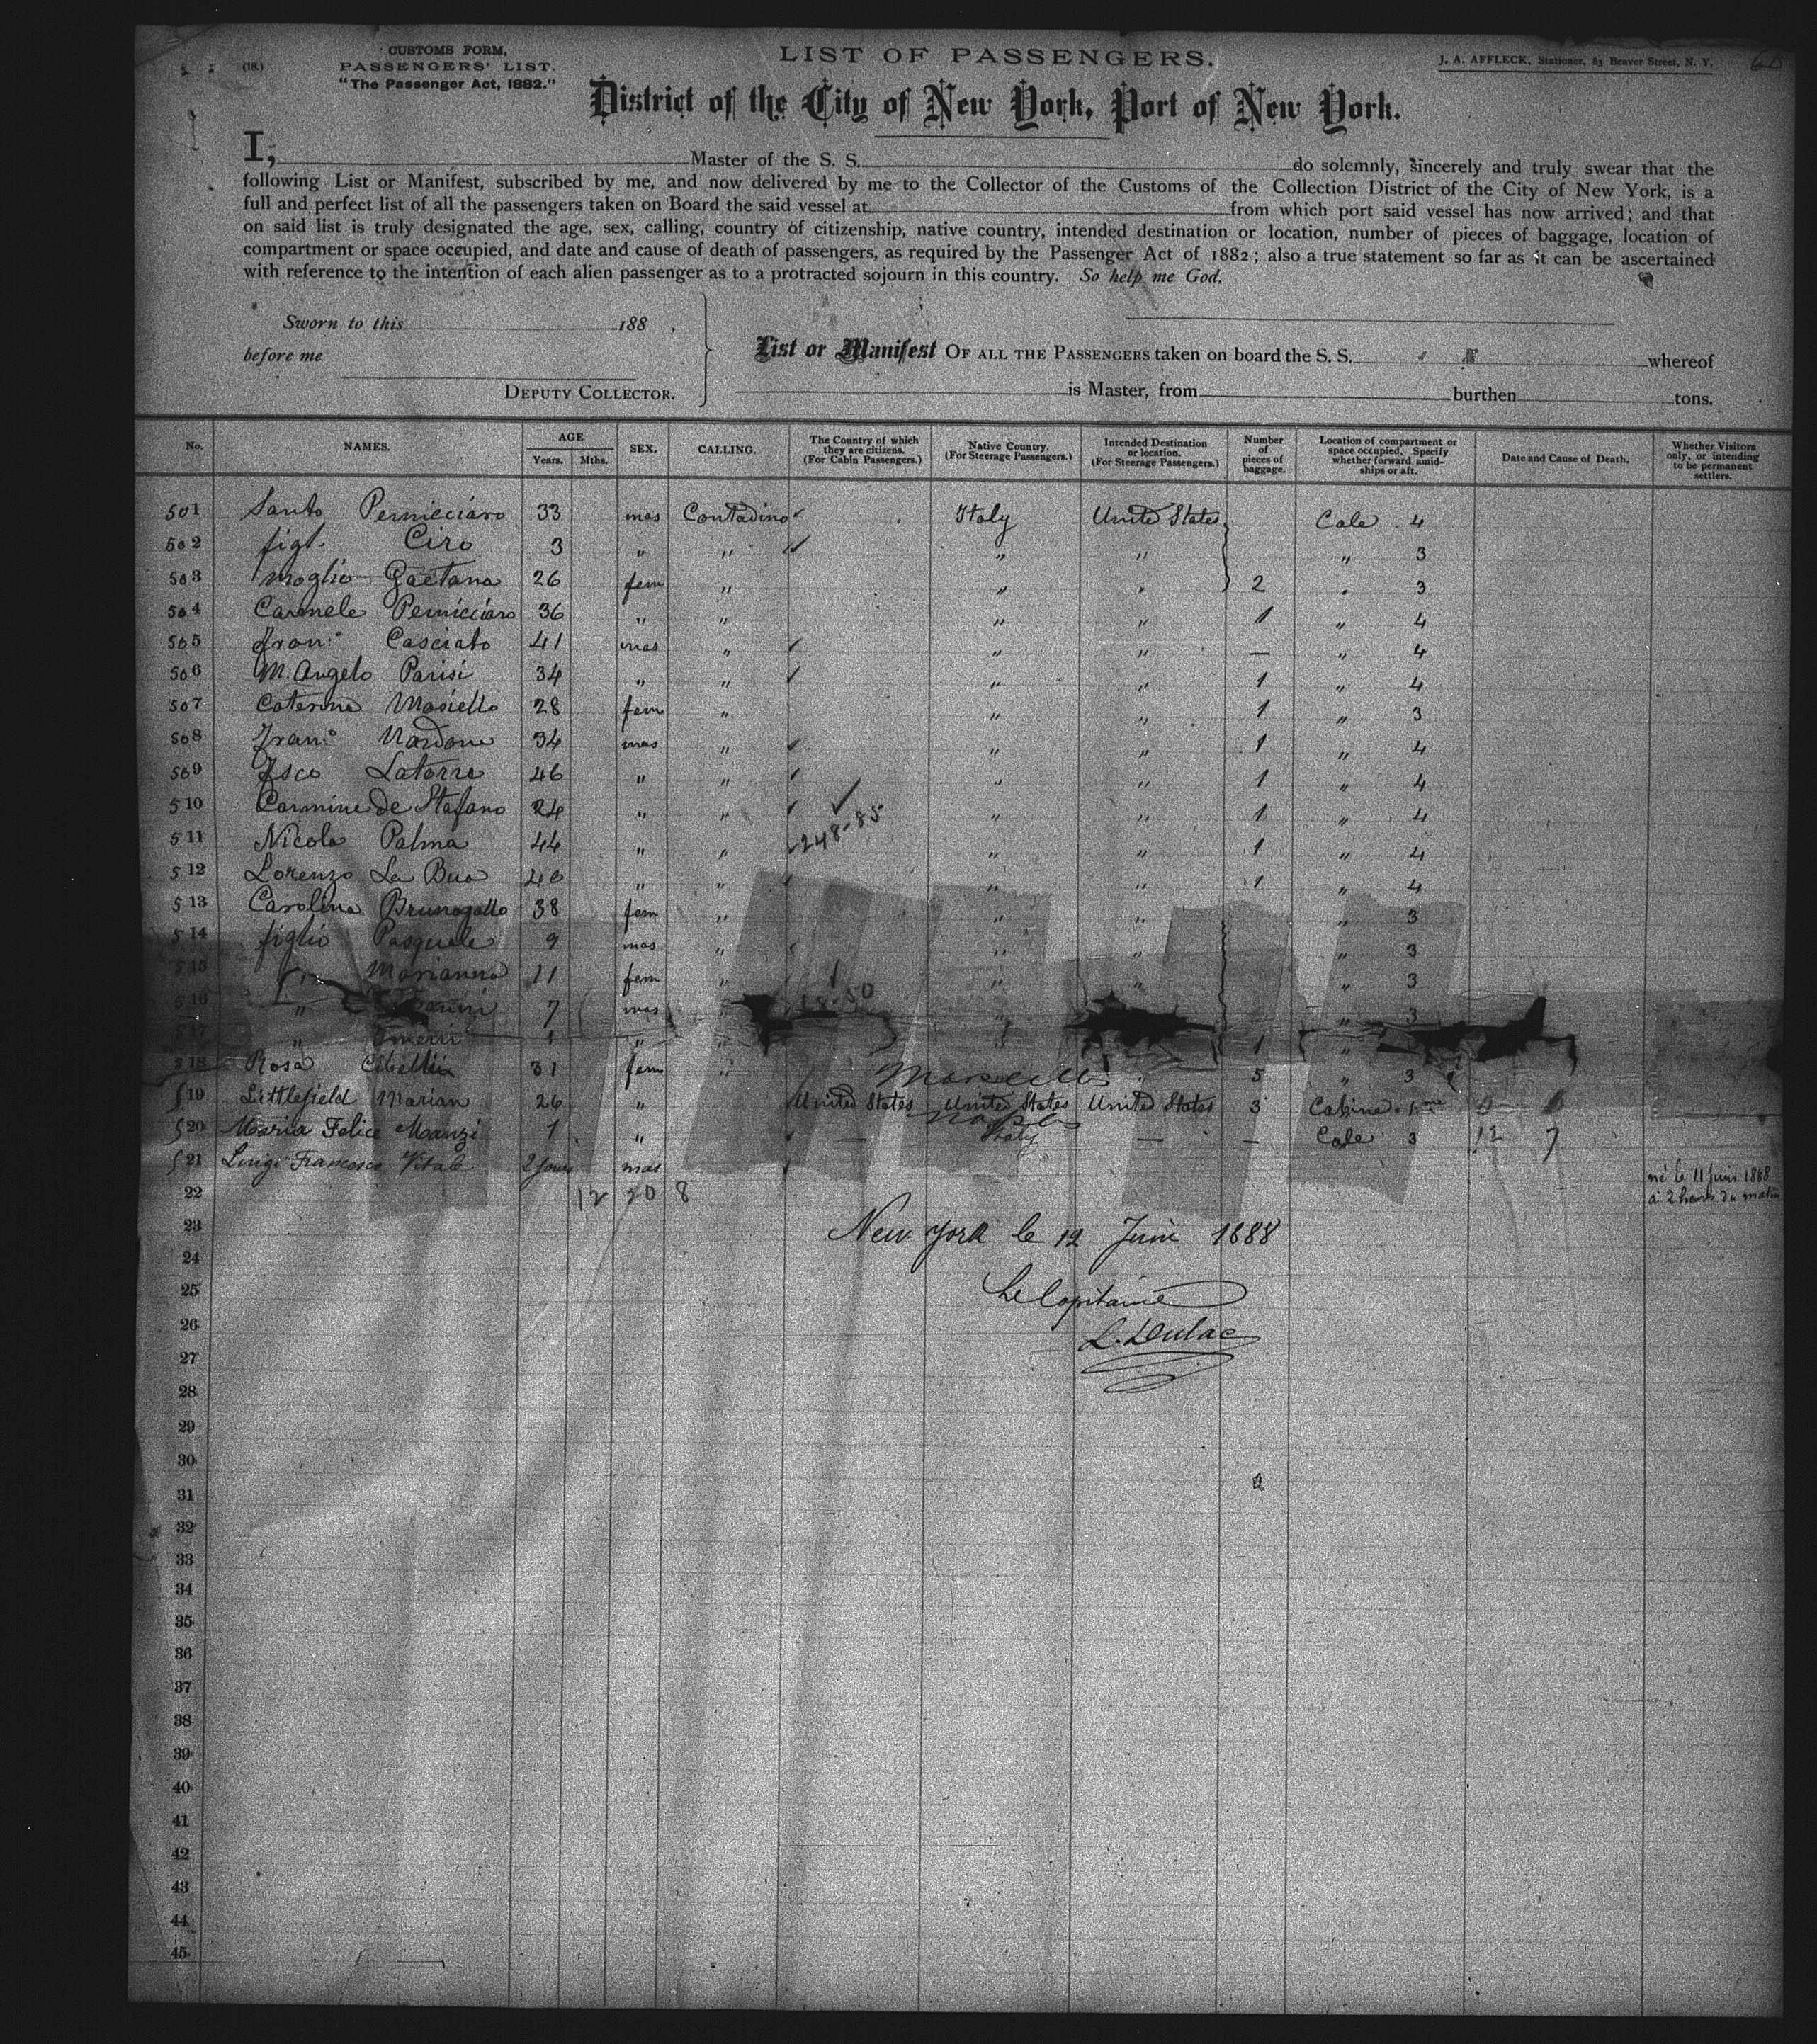 (18.)
CUSTOMS FORM,
PASSENGERS' LIST.
"The Passenger Act, 1882."
LIST OF PASSENGERS.
J. A. AFFLECK, Stationer, 85 Beaver Street, N. Y.
District of the City of New York, Port of New York.
I, Master of the S. S. do solemnly, sincerely and truly swear that the
following List or Manifest, subscribed by me, and now delivered by me to the Collector of the Customs of the Collection District of the City of New York, is a
full and perfect list of all the passengers taken on Board the said vessel at from which port said vessel has now arrived; and that
on said list is truly designated the age, sex, calling, country of citizenship, native country, intended destination or location, number of pieces of baggage, location of
compartment or space occupied, and date and cause of death of passengers, as required by the Passenger Act of 1882; also a true statement so far as it can be ascertained
with reference to the intention of each alien passenger as to a protracted sojourn in this country. So help me God.
Sworn to this 188 ,
before me
DEPUTY COLLECTOR.
List or Manifest OF ALL THE PASSENGERS taken on board the S. S. whereof
is Master, from burthen tons.
No. NAMES. AGE Years. Mths. SEX. CALLING. The Country of which they are citizens. (For Cabin Passengers.) Native Country. (For Steerage Passengers.) Intended Destination or location. (For Steerage Passengers.) Number of pieces of baggage. Location of compartment or space occupied. Specify whether forward, amidships or aft. Date and Cause of Death. Whether Visitors only, or intending to be permanent settlers.
501 Santo Pernicciaro 33 mas Contadino Italy United States Cale 4
502 figl. Ciro 3 " " " " " 3
503 moglie Gaetana 26 fem " " " 2 " 3
504 Carmele Pernicciaro 36 " " " " 1 " 4
505 Fran:o Casciato 41 mas " " " — " 4
506 M. Angelo Parisi 34 " " " " 1 " 4
507 Caterina Masiello 28 fem " " " 1 " 3
508 Fran:o Nardone 34 mas " " " 1 " 4
509 Fsco Latorre 46 " " " " 1 " 4
510 Carmine de Stefano 24 " " " " 1 " 4
511 Nicola Palma 44 " " 248-85 " " 1 " 4
512 Lorenzo La Bua 40 " " " " 1 " 4
513 Carolina Brunogallo 38 fem " " " " 3
514 figlio Pasquale 9 mas " " " 3
515 " Marianna 11 fem " " " " 3
516 " 7 mas " " 3
" " 1 "
518 Rosa 31 fem " Marseille " 5 " 3
519 Littlefield Marian 26 " United States United States United States 3 Cabine 1re
Naples
520 Maria Felice Manzi 1 " — Italy — — Cale 3 12 7
521 Luigi Francesco Vitale 2 jours mas né le 11 Juin 1888
à 2 heures du matin
22 12 20 8
23 New York le 12 Juin 1888
24
25 Le Capitaine
26 L. Dulac
27
28
29
30
31
32
33
34
35
36
37
38
39
40
41
42
43
44
45